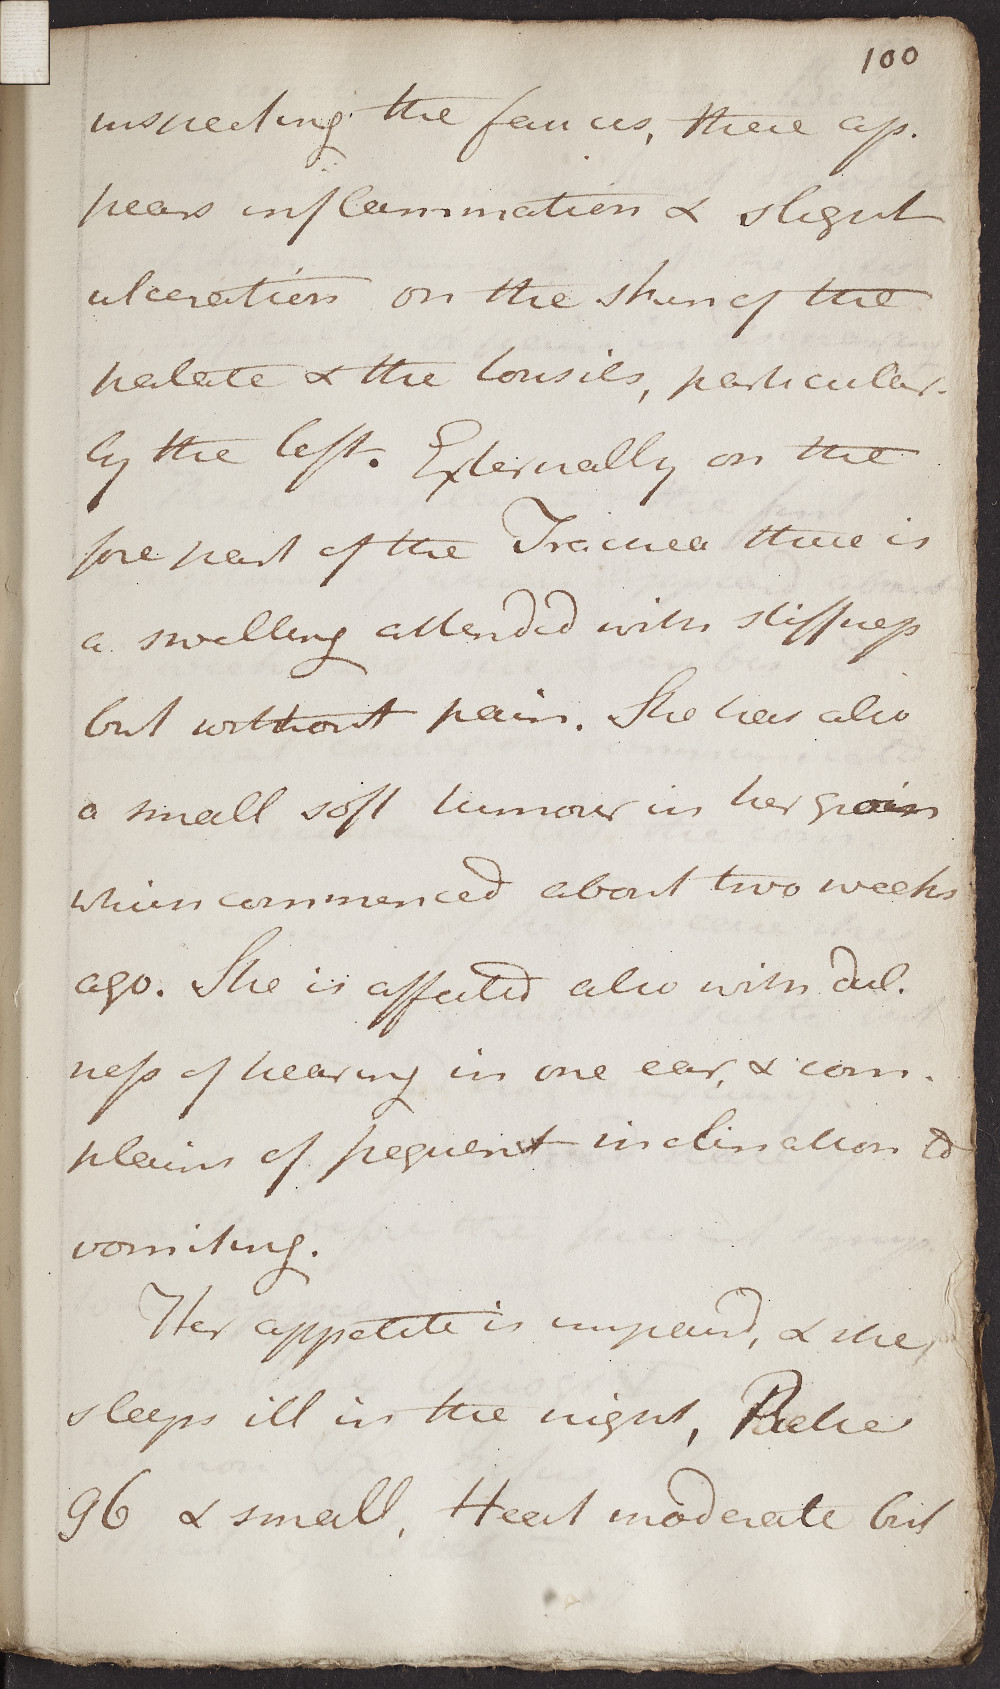 100
inspecting the fauces, there ap.
pears inflammation & slight
ulceration on the skin of the
palate & the tonsils, particular-
ly the left. Externally on the
fore part of the Trachea there is
a swelling attended with stiffness
but without pain. She has also
a small soft tumour in her groin
which commenced about two weeks
ago. She is affected also with dul.
ness of hearing in one ear, & com.
plains of frequent inclination to
vomiting.
Her appetite is impaird, & she
sleeps ill in the night, Pulse
96 & small, Heat moderate but